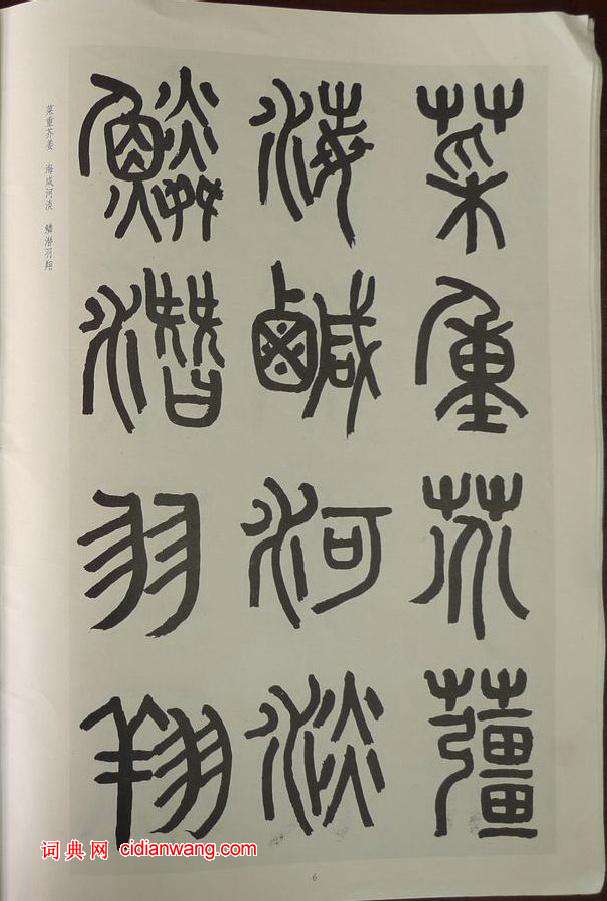 菜重芥薑
海鹹河淡
鱗潛羽翔
菜重芥姜 海咸河淡 鳞潜羽翔
词典网 cidianwang.com
6